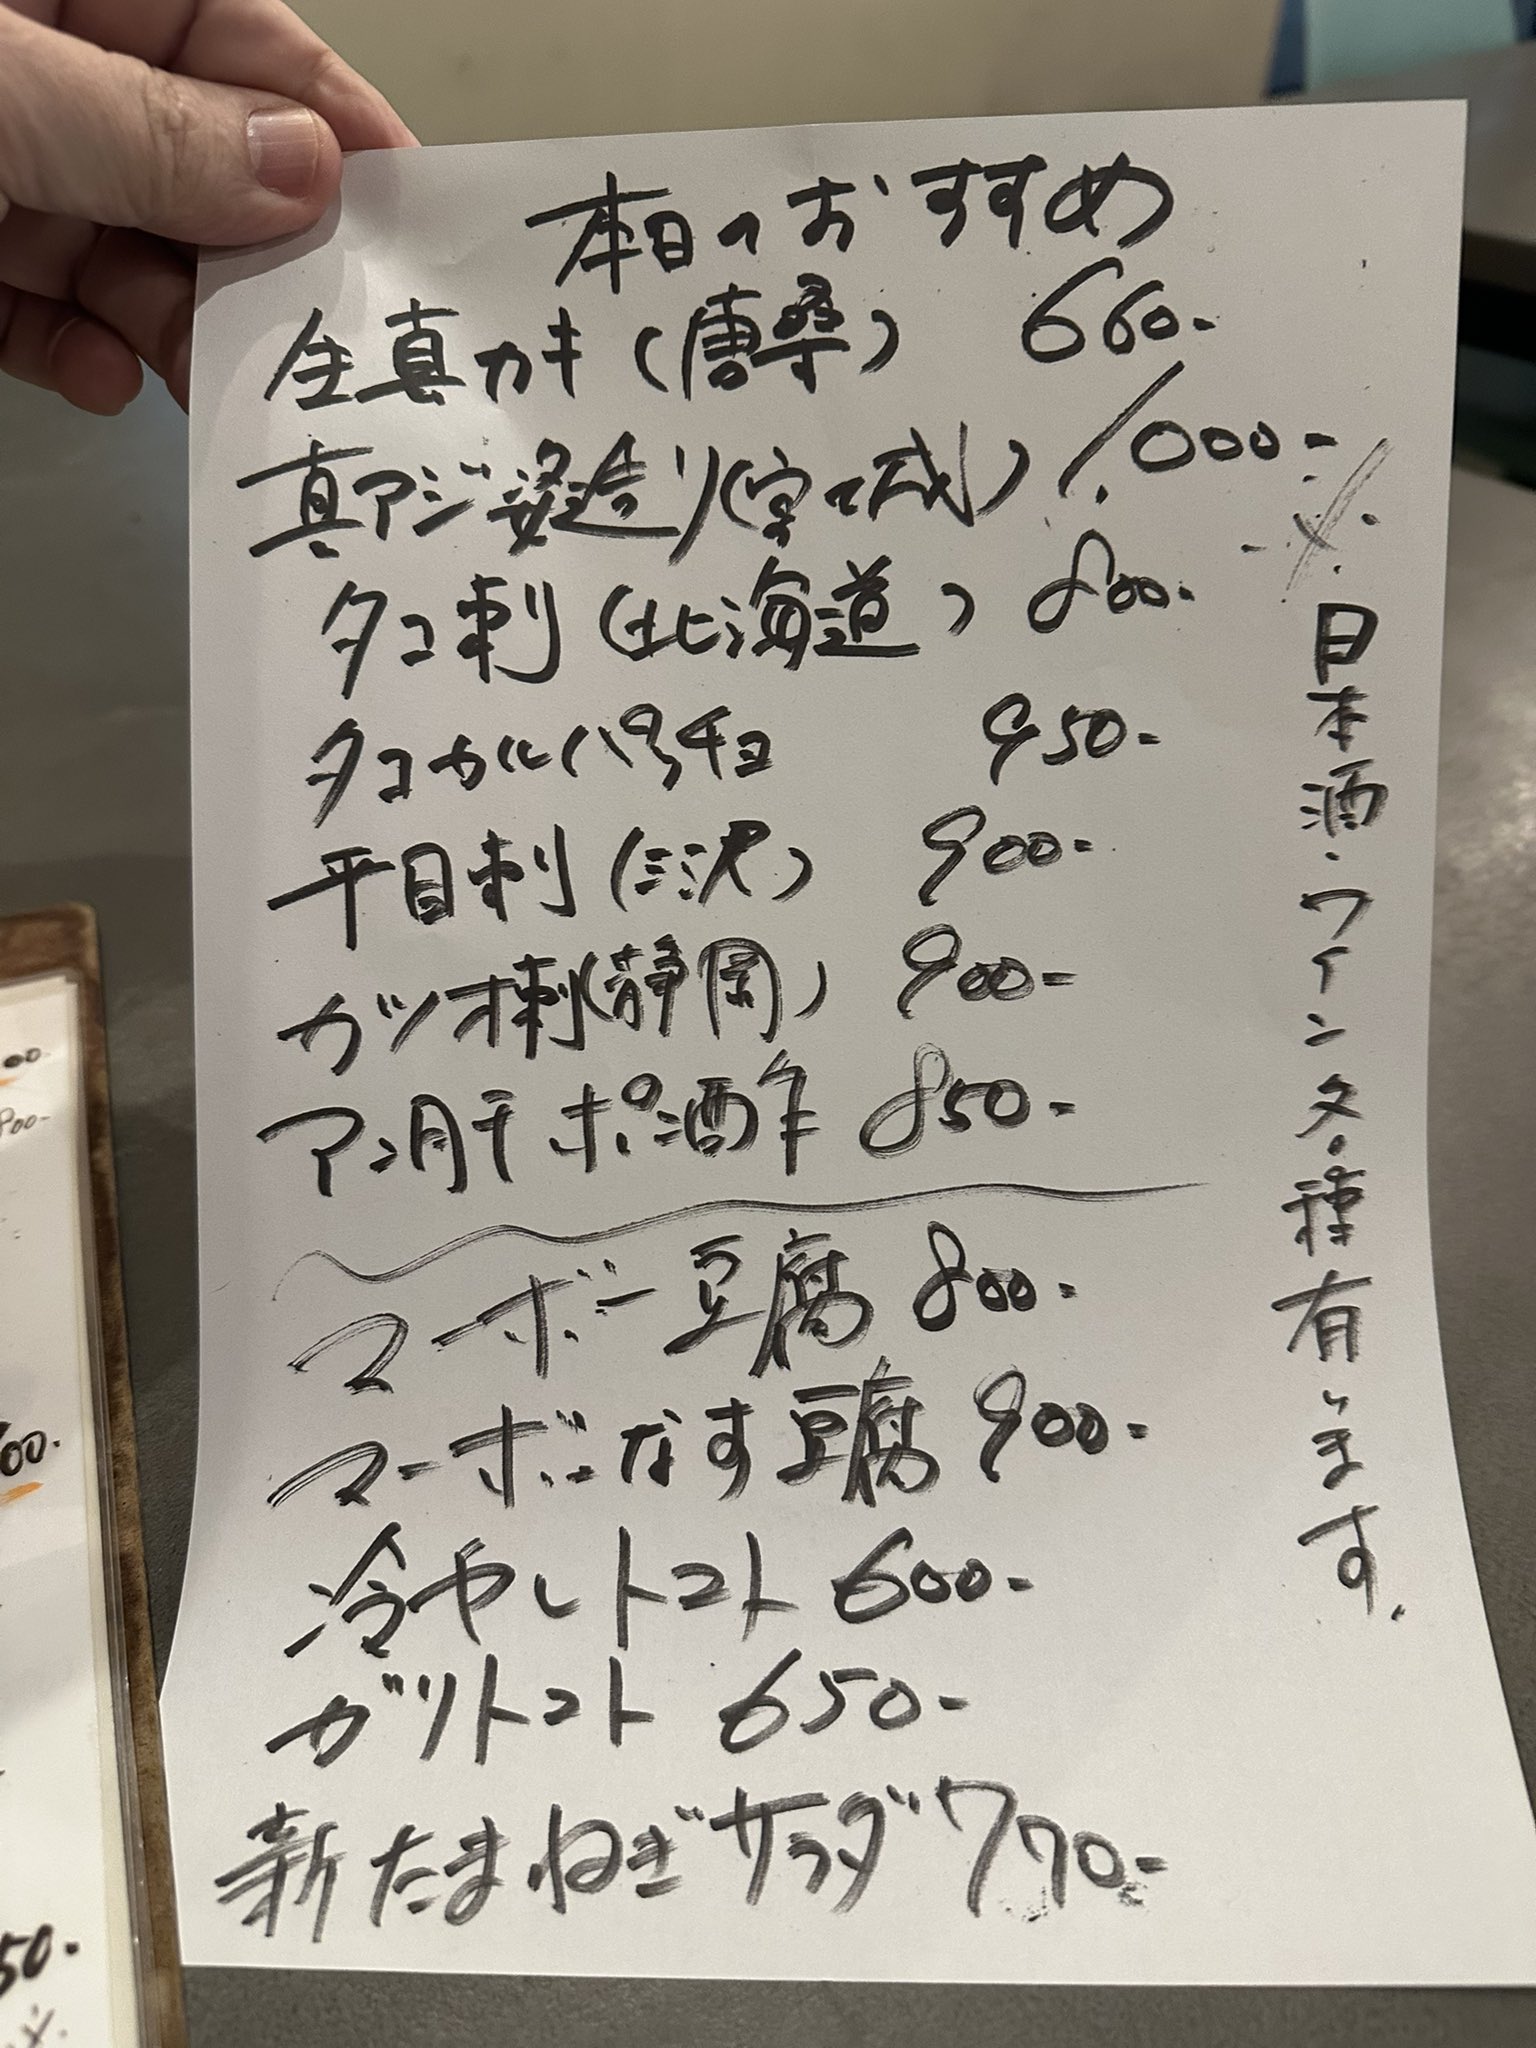 本日のおすすめ
生真カキ(唐桑) 660-
真アジ姿造り(宮城) 1000-
タコ刺(北海道) 800-
タコカルパッチョ 950-
平目刺(三沢) 900-
カツオ刺(静岡) 900-
アン肝ポン酢 850-
マーボー豆腐 800-
マーボーなす豆腐 900-
冷やしトマト 600-
ガリトマト 650-
新たまねぎサラダ 770-
※日本酒・ワイン各種有ります。
00-
800-
00-
50-